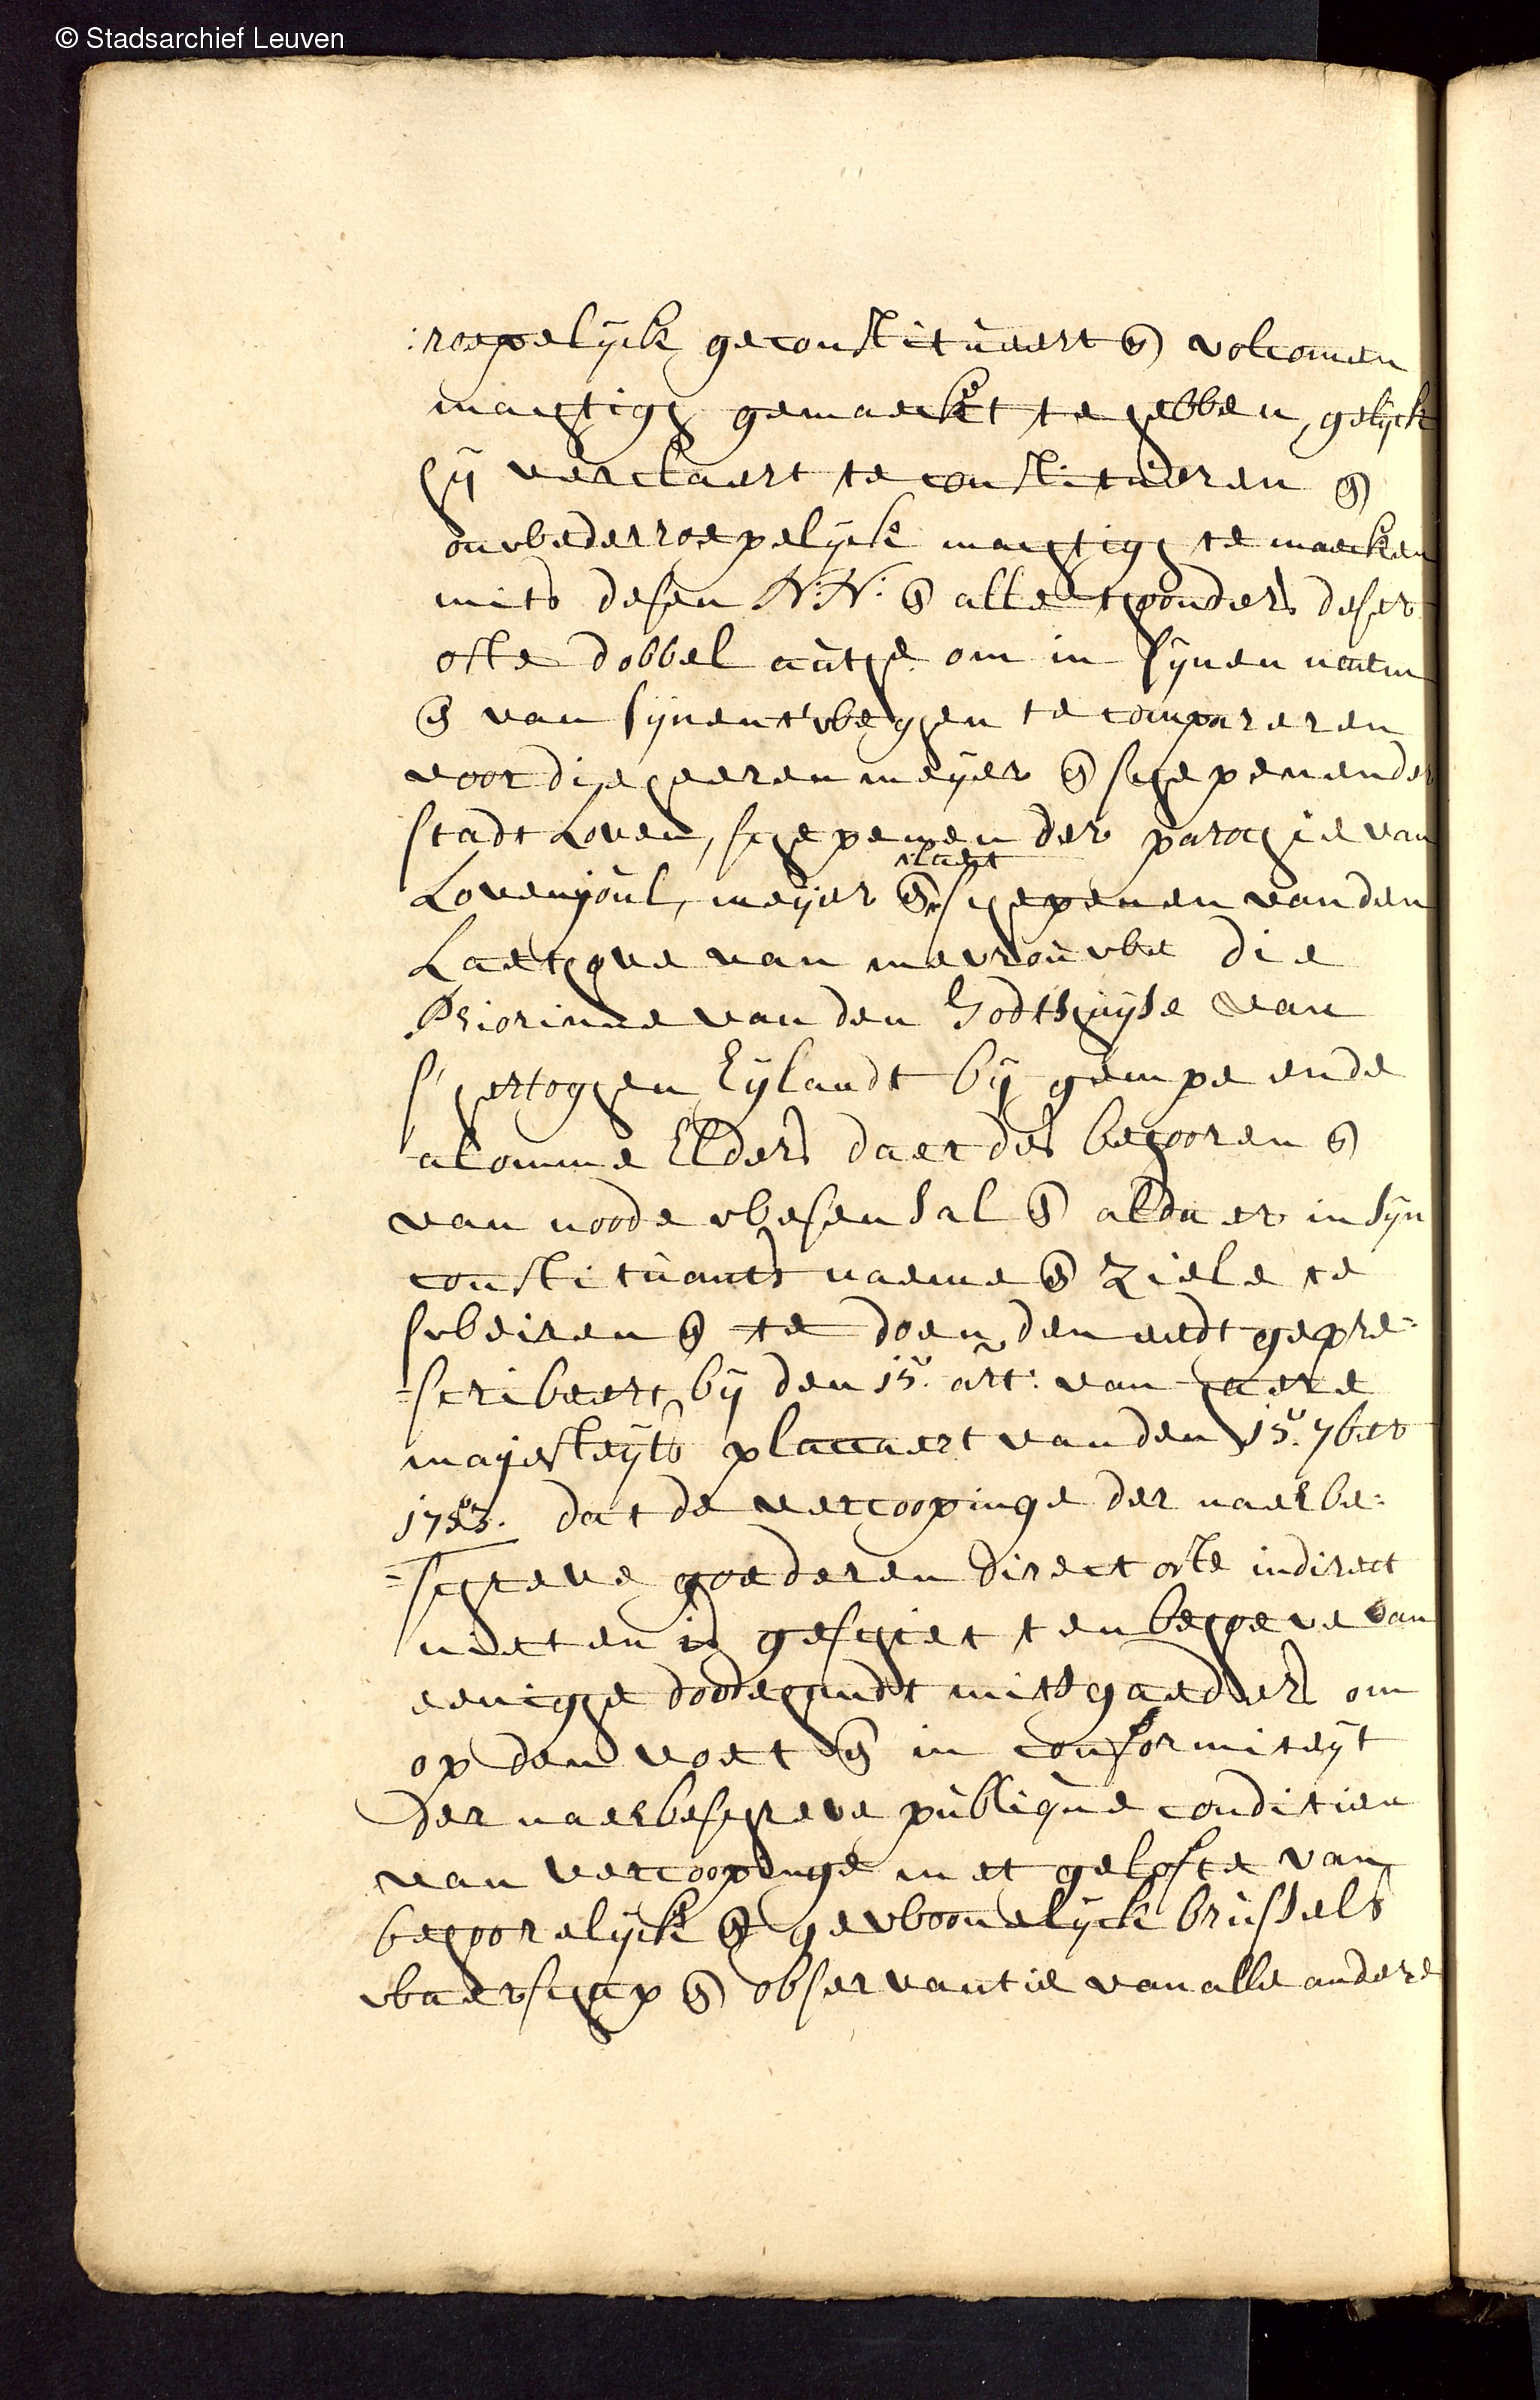 © Stadsarchief Leuven
:roepelijck geconstitueert ende volcomen
machtigh gemaeckt te hebben, gelijck
hij verclaert te constitueren ende
onwederroepelijck machtigh te maecken
mits desen N: N: ende alle thoonders deser
ofte dobbel auth: om in sijnen naem
ende van sijnent'weghen te compareren
voor die heeren meijer ende schepenen der
stadt Loven, schepenen der parochie van
laet
Lovenjoul, meijer ende schepenen van den
Laethove van mevrouwe die
Priorinne van den Godtshuijse van
s'hertoghen Eijlandt bij gempe ende
alomme Elders daer des behooren ende
van noode wesen sal ende aldaer in sijn
constituants naeme ende ziele te
sweiren ende te doen den eedt gepre=
=scribeert bij den 15. art: van haere
majesteijts placcaert van den 15. 7ber
1753. dat de vercoopinge der naerbe=
=schreve goederen direct ofte indirect
niet en is geschiet ten behoeve van
eenighe doodehandt mitsgaeders om
op den voet ende in conformiteijt
der naerbeschreve publique conditien
van vercoopinge met gelofte van
behoorelijck ende gewoonelijck brussels
waerschap ende observantie van alle andere